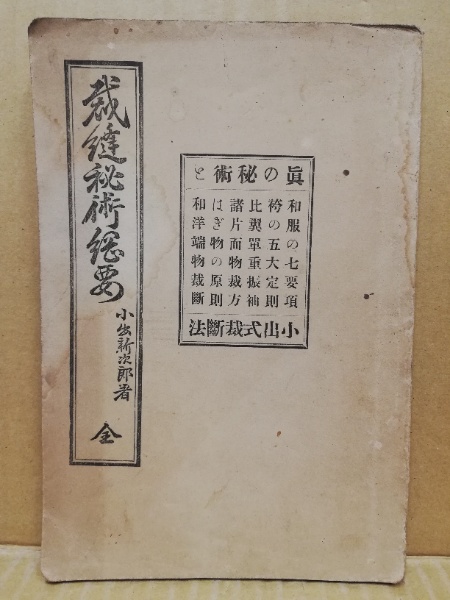 裁縫秘術綱要
小出新次郎著
全
眞の秘術と
和服の七要項
袴の五大定則
比翼單重振袖
諸片面物裁方
はぎ物の原則
和洋端物裁斷
小出式裁斷法